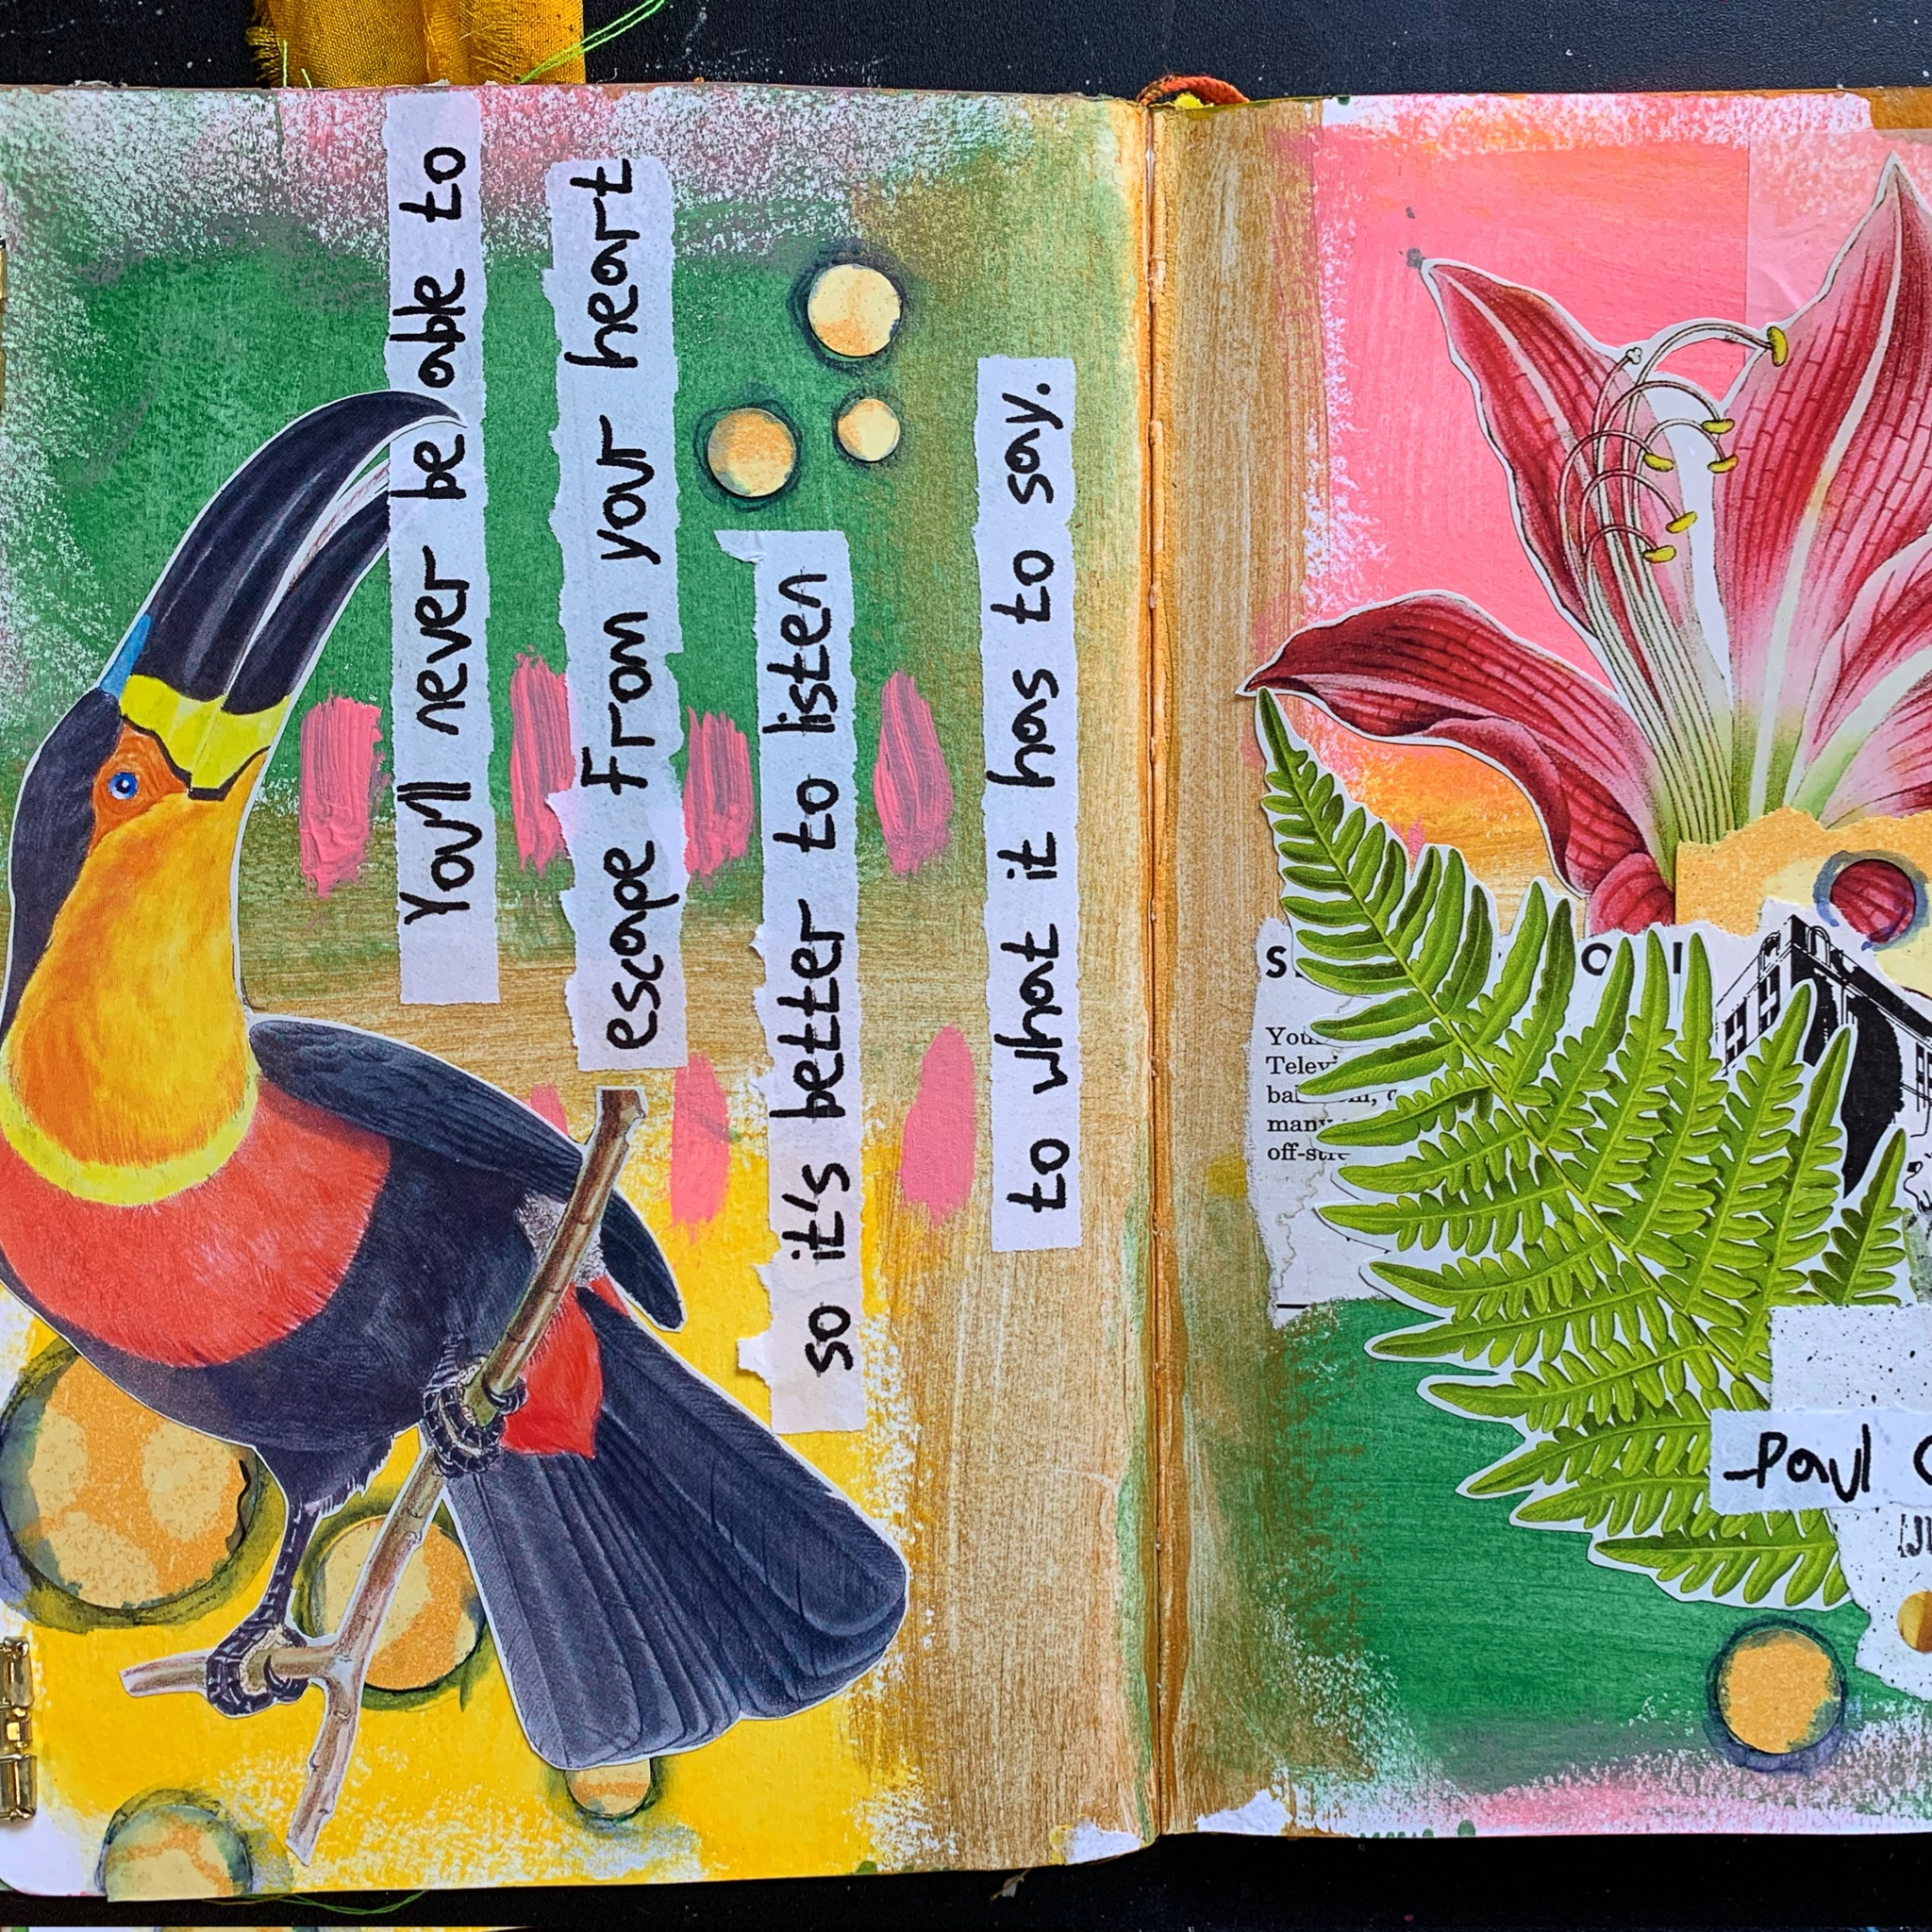 You'll never be able to
escape From your heart
so it's better to listen
to what it has to say.
many
off-stre
-Paul